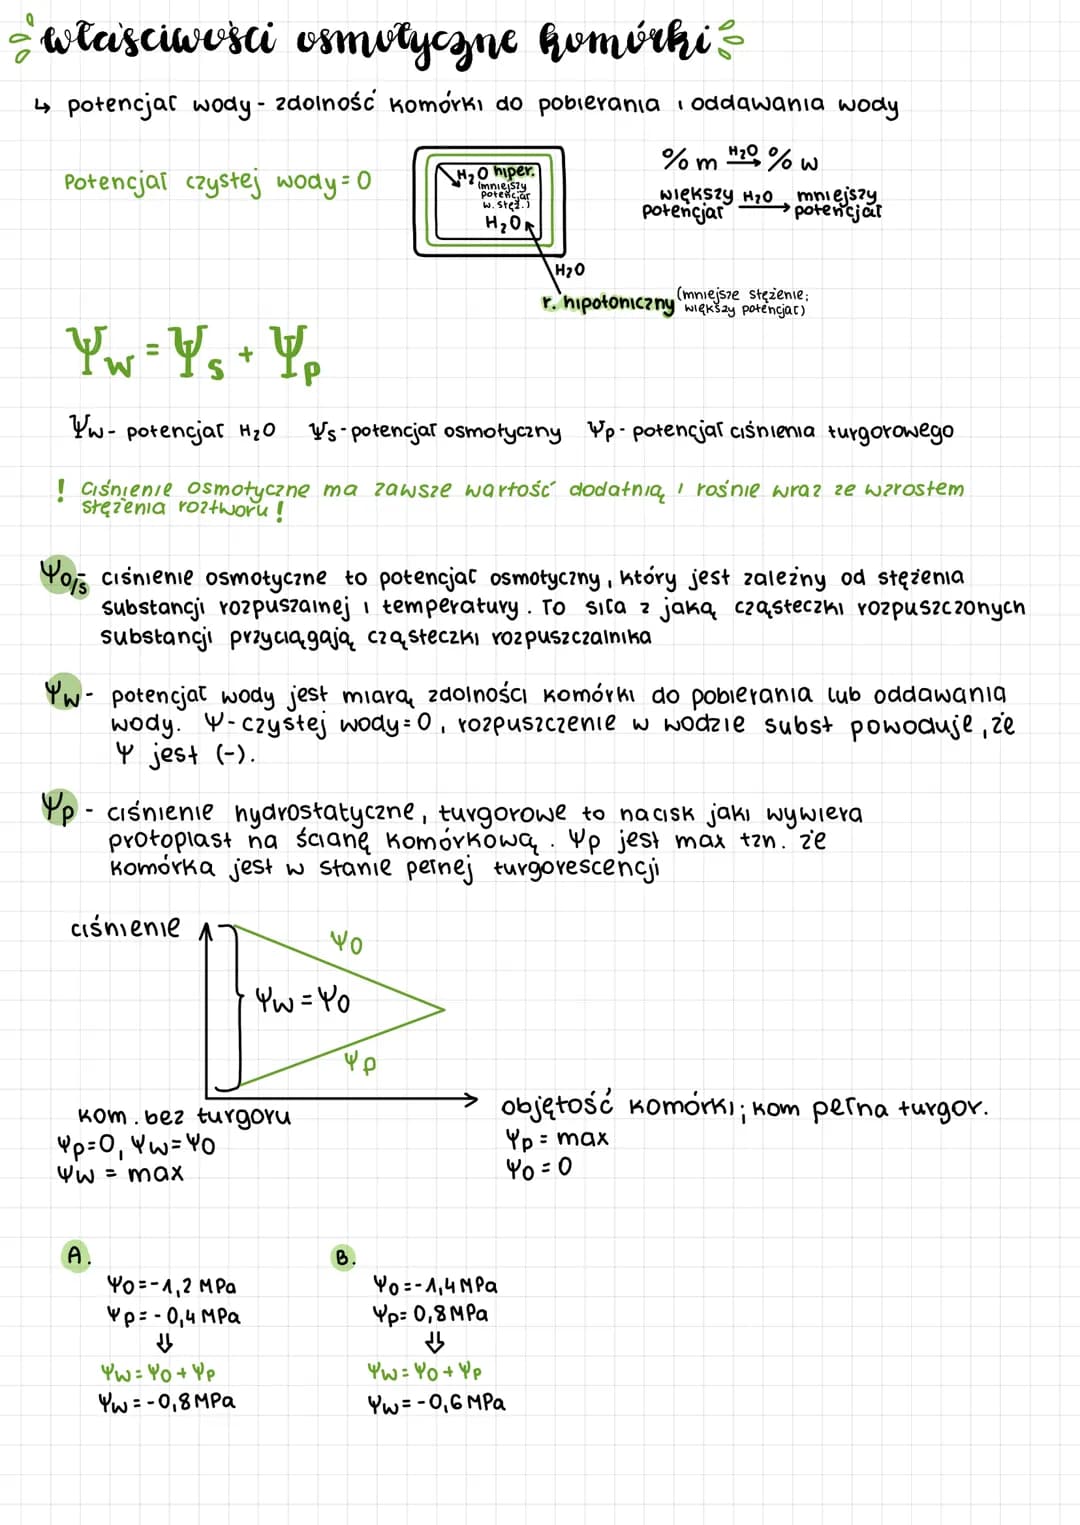 właściwości osmotyczne komórki
↳ potencjał wody - zdolność komórki do pobierania i oddawania wody
Potencjał czystej wody = 0
H₂O hiper.
(mniejszy
potencjał
w. stęż.)
H₂O
H₂O
r. hipotoniczny (mniejsze stężenie;
większy potencjał)
% m H₂O→ % w
większy H₂O→ mniejszy
potencjał potencjał
Ψw = Ψs + Ψp
Ψw - potencjał H₂O Ψs - potencjał osmotyczny Ψp - potencjał ciśnienia turgorowego
! Ciśnienie osmotyczne ma zawsze wartość dodatnią i rośnie wraz ze wzrostem
stężenia roztworu !
Ψo/s - ciśnienie osmotyczne to potencjał osmotyczny, który jest zależny od stężenia
substancji rozpuszalnej i temperatury. To siła z jaką cząsteczki rozpuszczonych
substancji przyciągają cząsteczki rozpuszczalnika
Ψw - potencjał wody jest miarą zdolności komórki do pobierania lub oddawania
wody. Ψ - czystej wody = 0, rozpuszczenie w wodzie subst powoduje, że
Ψ jest (-).
Ψp - ciśnienie hydrostatyczne, turgorowe to nacisk jaki wywiera
protoplast na ścianę komórkową. Ψp jest max tzn. że
komórka jest w stanie pełnej turgorescencji
ciśnienie
Ψo
Ψw = Ψo
Ψp
kom. bez turgoru
Ψp=0, Ψw=Ψo
Ψw = max
objętość komórki; kom pełna turgor.
Ψp = max
Ψo = 0
A.
Ψo = -1,2 MPa
Ψp = -0,4 MPa
⇓
Ψw = Ψo + Ψp
Ψw = -0,8 MPa
B.
Ψo = -1,4 MPa
Ψp = 0,8 MPa
⇓
Ψw = Ψo + Ψp
Ψw = -0,6 MPa